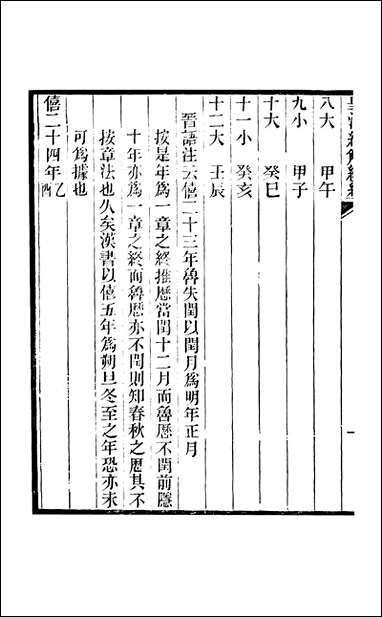 皇清經解續編
八大　甲午
九小　甲子
十大　癸巳
十一小　癸亥
十二大　壬辰
晉語注云僖二十三年魯失閏以閏月爲明年正月
按是年爲一章之終推曆當閏十二月而魯曆不閏前隱
十年亦爲一章之終而魯曆亦不閏則知春秋之曆其不
按章法也久矣漢書以僖五年爲朔旦冬至之年恐亦未
可爲據也
僖二十四年乙酉